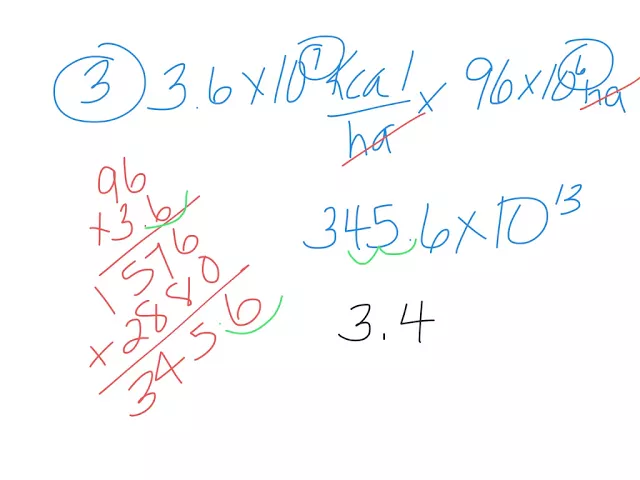 3 3.6 x 10^7 kcal/ha x 96 x 10^6 ha
96
x 3 6
1 576
x 2880
345.6
345.6 x 10^13
3.4